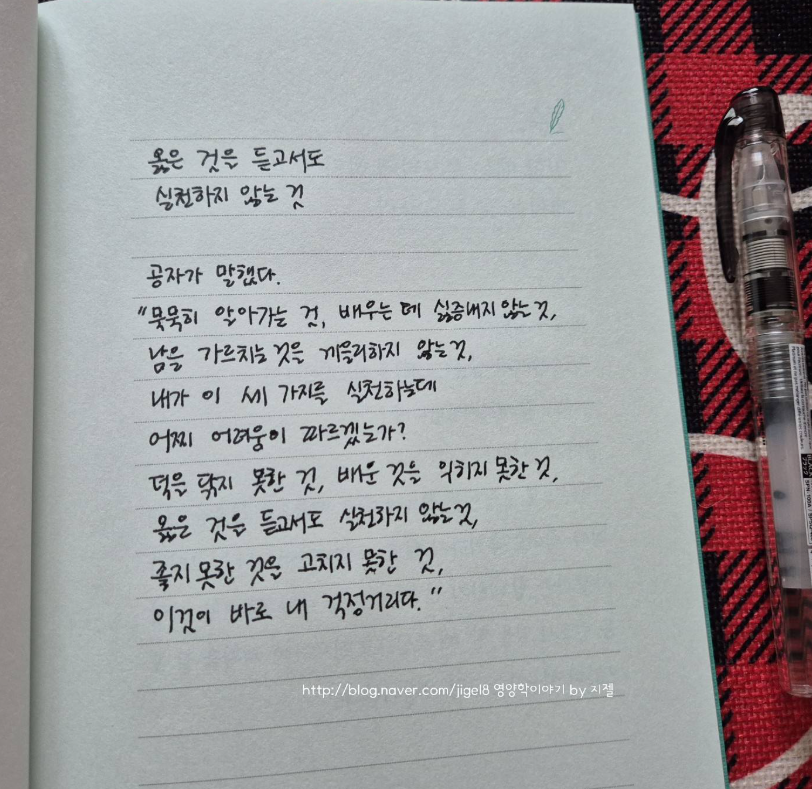 옳은 것을 듣고서도
실천하지 않는 것
공자가 말했다.
"묵묵히 알아가는 것, 배우는 데 싫증내지 않는 것,
남을 가르치는 것을 게을리하지 않는 것,
내가 이 세 가지를 실천하는데
어찌 어려움이 따르겠는가?
덕을 닦지 못한 것, 배운 것을 익히지 못한 것,
옳은 것을 듣고서도 실천하지 않는 것,
좋지 못한 것을 고치지 못한 것,
이것이 바로 내 걱정거리다."
http://blog.naver.com/jigel8 영양학이야기 by 지젤